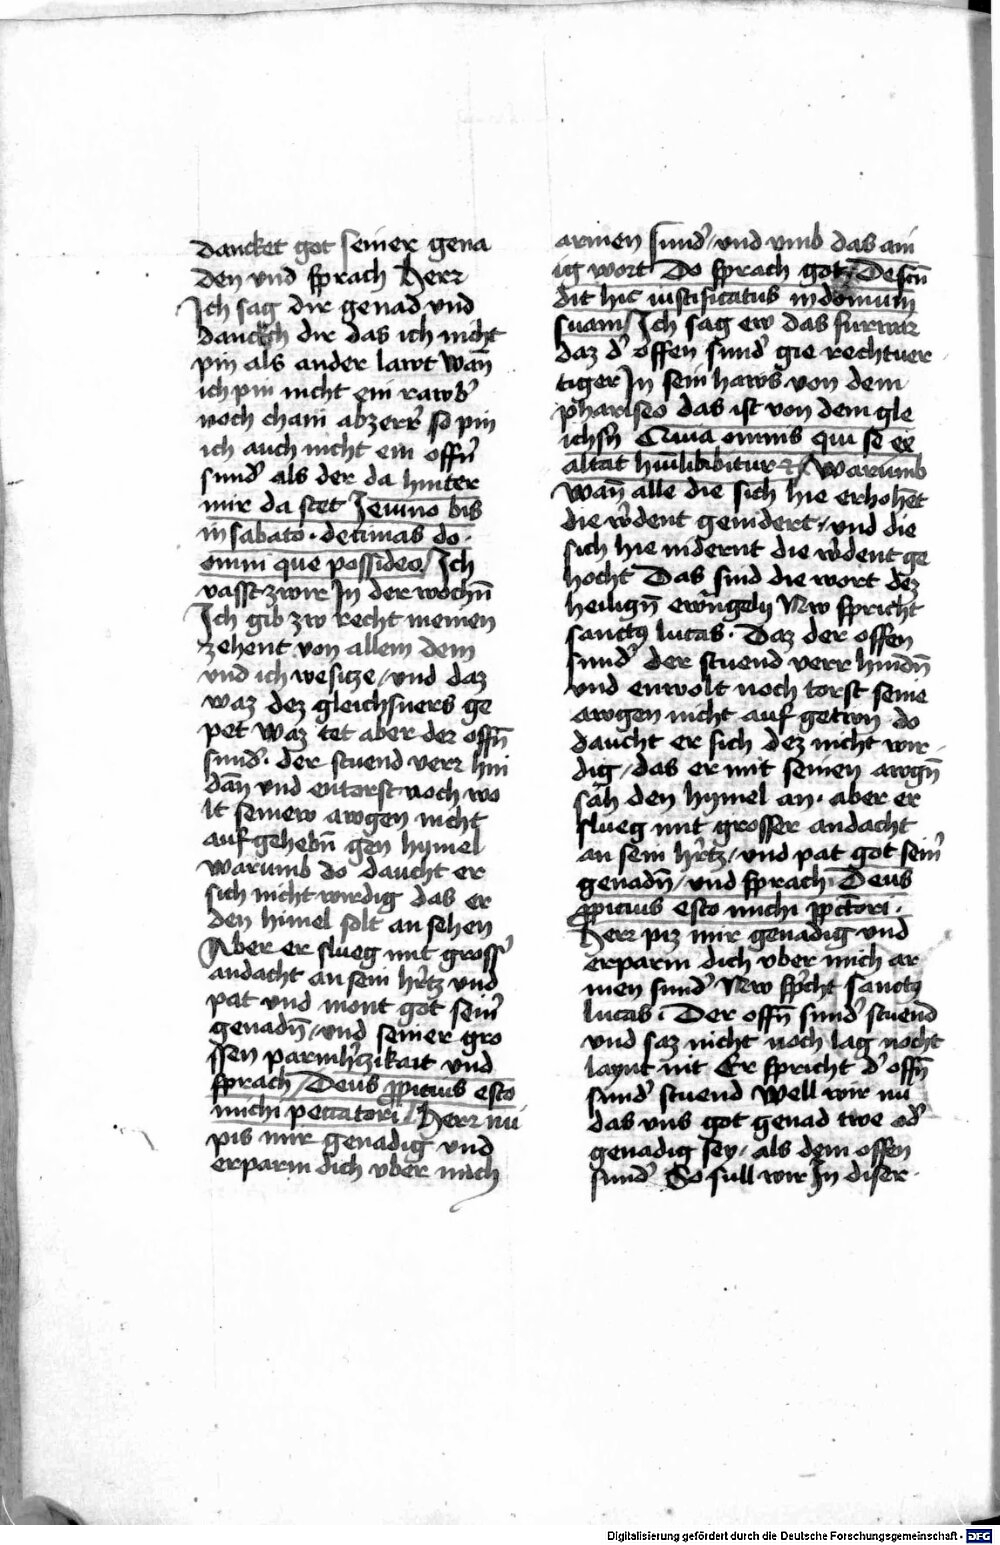 dancket got seiner gena
den vnd sprach Herr
Ich sag dir genad vnd
danckch dir das ich nicht
pin als ander lawt wan̄
ich pin nicht ein rawb̓
noch chain abzerr̓ so pin
ich auch nicht ein offn̄
sund̓ als der da hinter
mir da stet Ieiuno bis
in sabato · decimas do ·
omni que possideo / Ich
vasst zwir Jn der wochn̄
Ich gib zw recht meinen
zehent von allem dem
vnd ich wesicze / vnd daz
waz dez gleichsners ge
pet waz tet aber der offn̄
sund̓ · der stuend verr hin
dan̄ vnd entorst noch wo
lt seinew awgen nicht
auf gehebn̄ gen hymel
warumb do daucht er
sich nicht wirdig das er
den himel solt an sehen
Aber er slueg mit gross̓
andacht an sein hr̓tz vnd
pat vnd mont got sein̓
genadn̄ / vnd seiner gro
ssen parmhr̓czikait vnd
sprach / Deus ꝓpicius esto
michi peccatori / Herr nu
pis mir genadig vnd
erparm dich vber mich
armen sund̓ / vnd vmb das ain
ig wort Do sprach got / Descn̄
dit hic iustificatus in domum
suam / Ich sag ew das furwar
daz d̓ offen sund̓ gie rechtuer
tiger Jn sein haws von dem
phariseo das ist von dem gle
ichsn̓ Quia omnis qui se ex
altat humilibibitur Warumb
Wan̄ alle die sich hie erhohet
die wr̓dent genidert / vnd die
sich hie nidernt die wr̓dent ge
hocht Das sind die wort dez
heilign̄ ewn̄gelij Nw spricht
sanctꝰ lucas · Daz der offen
sund̓ der stuend verr hindn̄
vnd enwolt noch torst seine
awgen nicht auf getwn do
daucht er sich dez nicht wir
dig / das er mit seinen awgn̄
säh den hymel an · aber er
slueg mit grosser andacht
an sein hr̓tz / vnd pat got sein̓
genadn̄ / vnd sprach Deus
ꝓpicius esto michi pctōri ·
Herr piz mir genadig vnd
erparm dich vber mich ar
men sund̓ Nw spr̓cht sanctꝰ
lucas · Der offn̄ sund̓ stuend
vnd saz nicht noch lag nocht
laynt nit Er spricht d̓ offn̄
sund̓ stuend Well wir nu
das vns got genad twe od̓
genadig sey / als dem offen
sund̓ So sull wir Jn diser ·
Digitalisierung gefördert durch die Deutsche Forschungsgemeinschaft - DFG